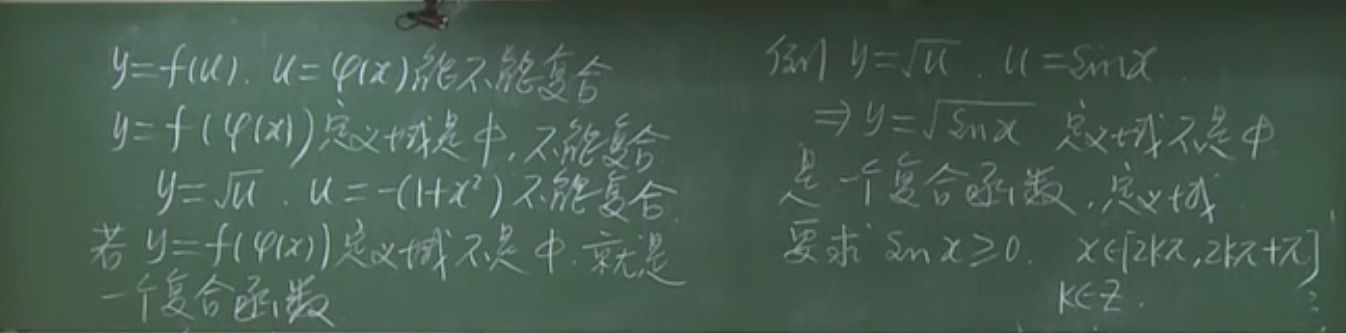 y=f(u). u=φ(x)能不能复合
y=f(φ(x))定义域是φ,不能复合
y=√u . u=-(1+x²)不能复合.
若 y=f(φ(x))定义域不是φ.就是
一个复合函数
例 y=√u . u=sinx.
⇒y=√sinx 定义域不是φ
是一个复合函数,定义域
要求 sinx≥0. x∈[2kπ,2kπ+π]
k∈Z.